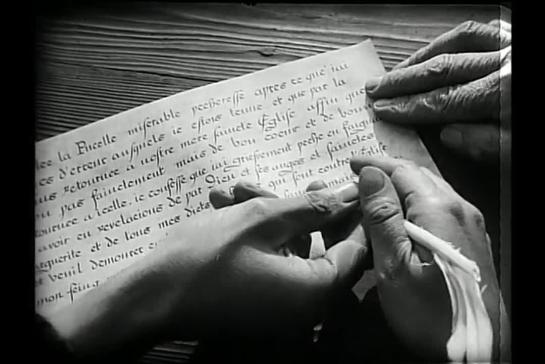 lee la Pucelle miserable pecheresse apres ce que iai
es d'erreur auquels ie estois tenue et que par la
us retournee a nostre mere saincte Eglise affin que
ou pas fainctement mais de bon coeur et de bon
tournee a icelle, ie confesse que iai griefuement peche en faign
avoir eu revelacions de par Dieu et ses anges et sainctes
rguerite et de tous mes dicts qui sont contre l'Eglise
et veuil demourer
mon seing